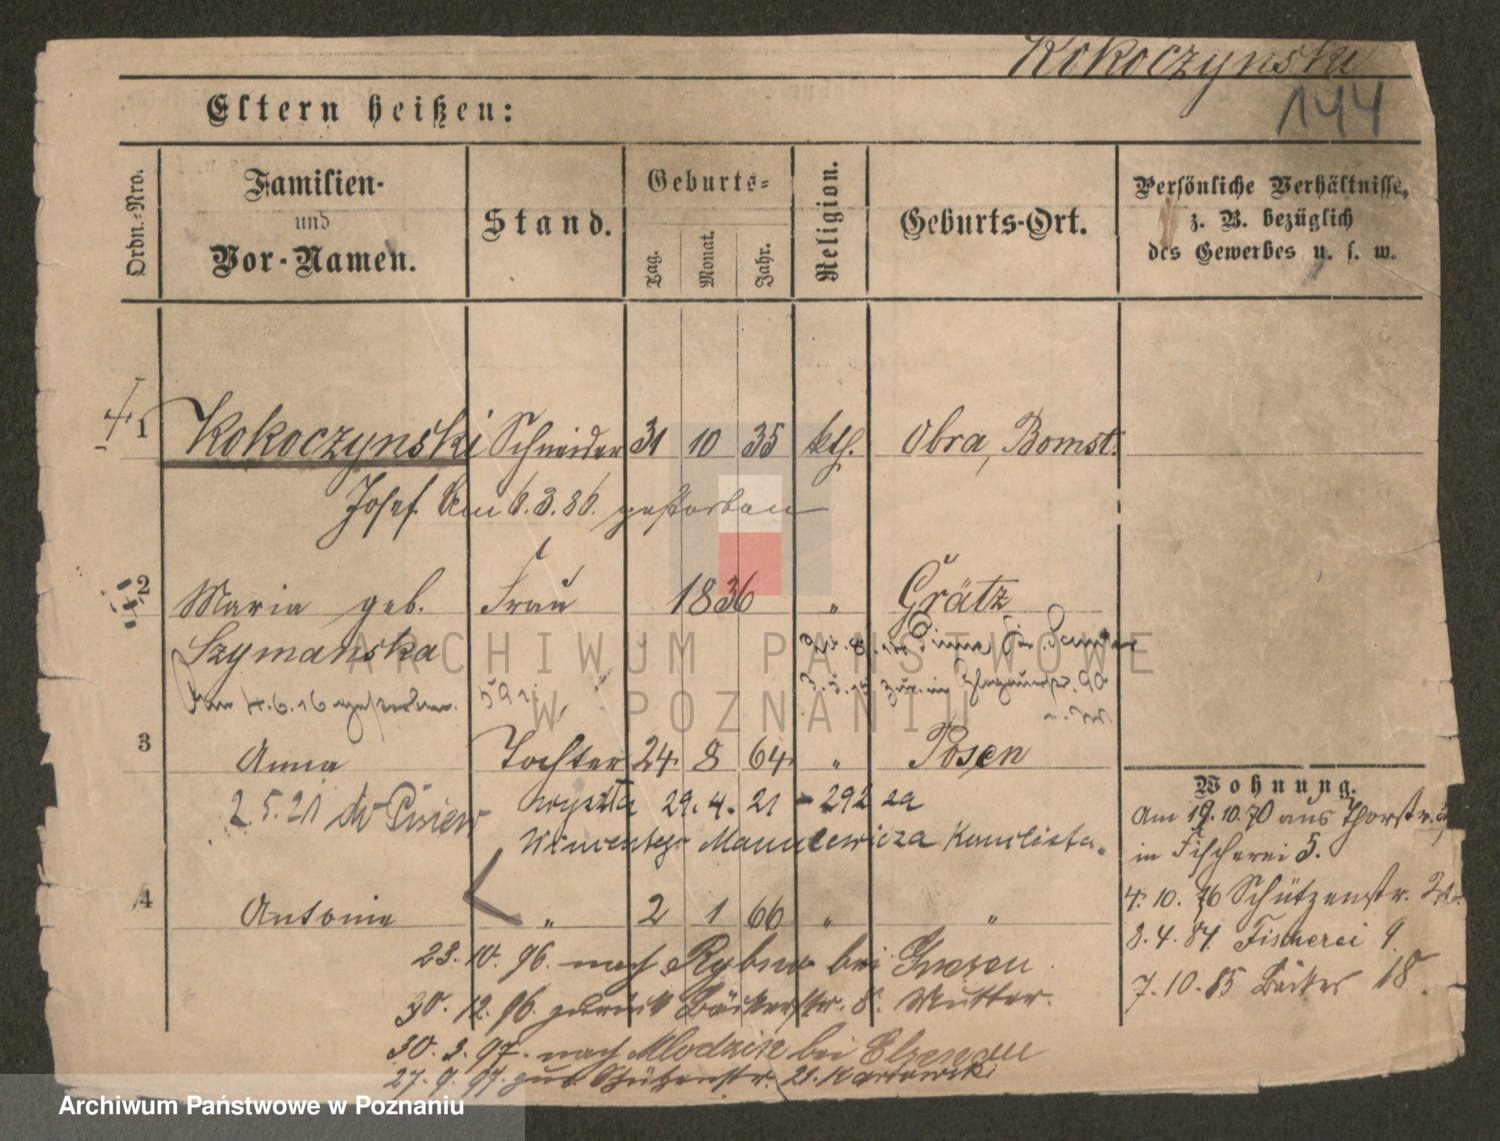 Kokoczynski
144
Eltern heißen:
Ordn.-Nro.
Familien-
und
Vor-Namen.
Stand.
Geburts-
Tag.
Monat.
Jahr.
Religion.
Geburts-Ort.
Persönliche Verhältnisse,
z. B. bezüglich
des Gewerbes u. s. w.
1 Kokoczynski Schneider 31 10 35 kth. Obra, Bomst.
Josef. Am 6.3.86. gestorben
2 Maria geb. Frau 1836 " Grätz
Szymanska
Am 4.6.16 gestorben.
3 Anna Tochter 24. 8 64. " Posen
2.5.21 do wyszła 29.4.21 - 292 za
Wincentego Kancelista.
4 Antonie " 2 1 66 " "
23.10.96. nach bei Gnesen
30.12.96. zurück Bäckerstr. 8. Mutter.
30.3.97. nach bei
27.9.97. zur. Schützenstr. 21.
Wohnung.
Am 19.10.70 aus Thorstr.
in Fischerei 5.
4.10.76 Schützenstr.
3.4.84. Fischerei 9.
7.10.85 Bäcker 18.
ARCHIWUM PAŃSTWOWE
W POZNANIU
Archiwum Państwowe w Poznaniu